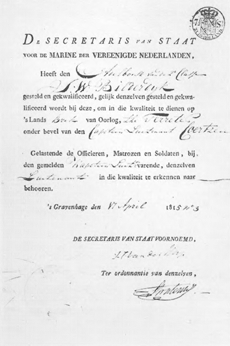 DE SECRETARIS VAN STAAT
VOOR DE MARINE DER VEREENIGDE NEDERLANDEN,
Heeft den
J. W. Bilderdijk
gesteld en gekwalificeerd, gelijk denzelven gesteld en gekwa-
lificeerd wordt bij deze, om in die kwaliteit te dienen op
's Lands Brik van Oorlog, de
onder bevel van den Capitein Luitenant Coertzen
Gelastende de Officieren, Matrozen en Soldaten, bij
den gemelden varende, denzelven
in die kwaliteit te erkennen naar
behooren.
's Gravenhage den April 1815 No 3
DE SECRETARIS VAN STAAT VOORNOEMD,
Ter ordonnantie van denzelven,